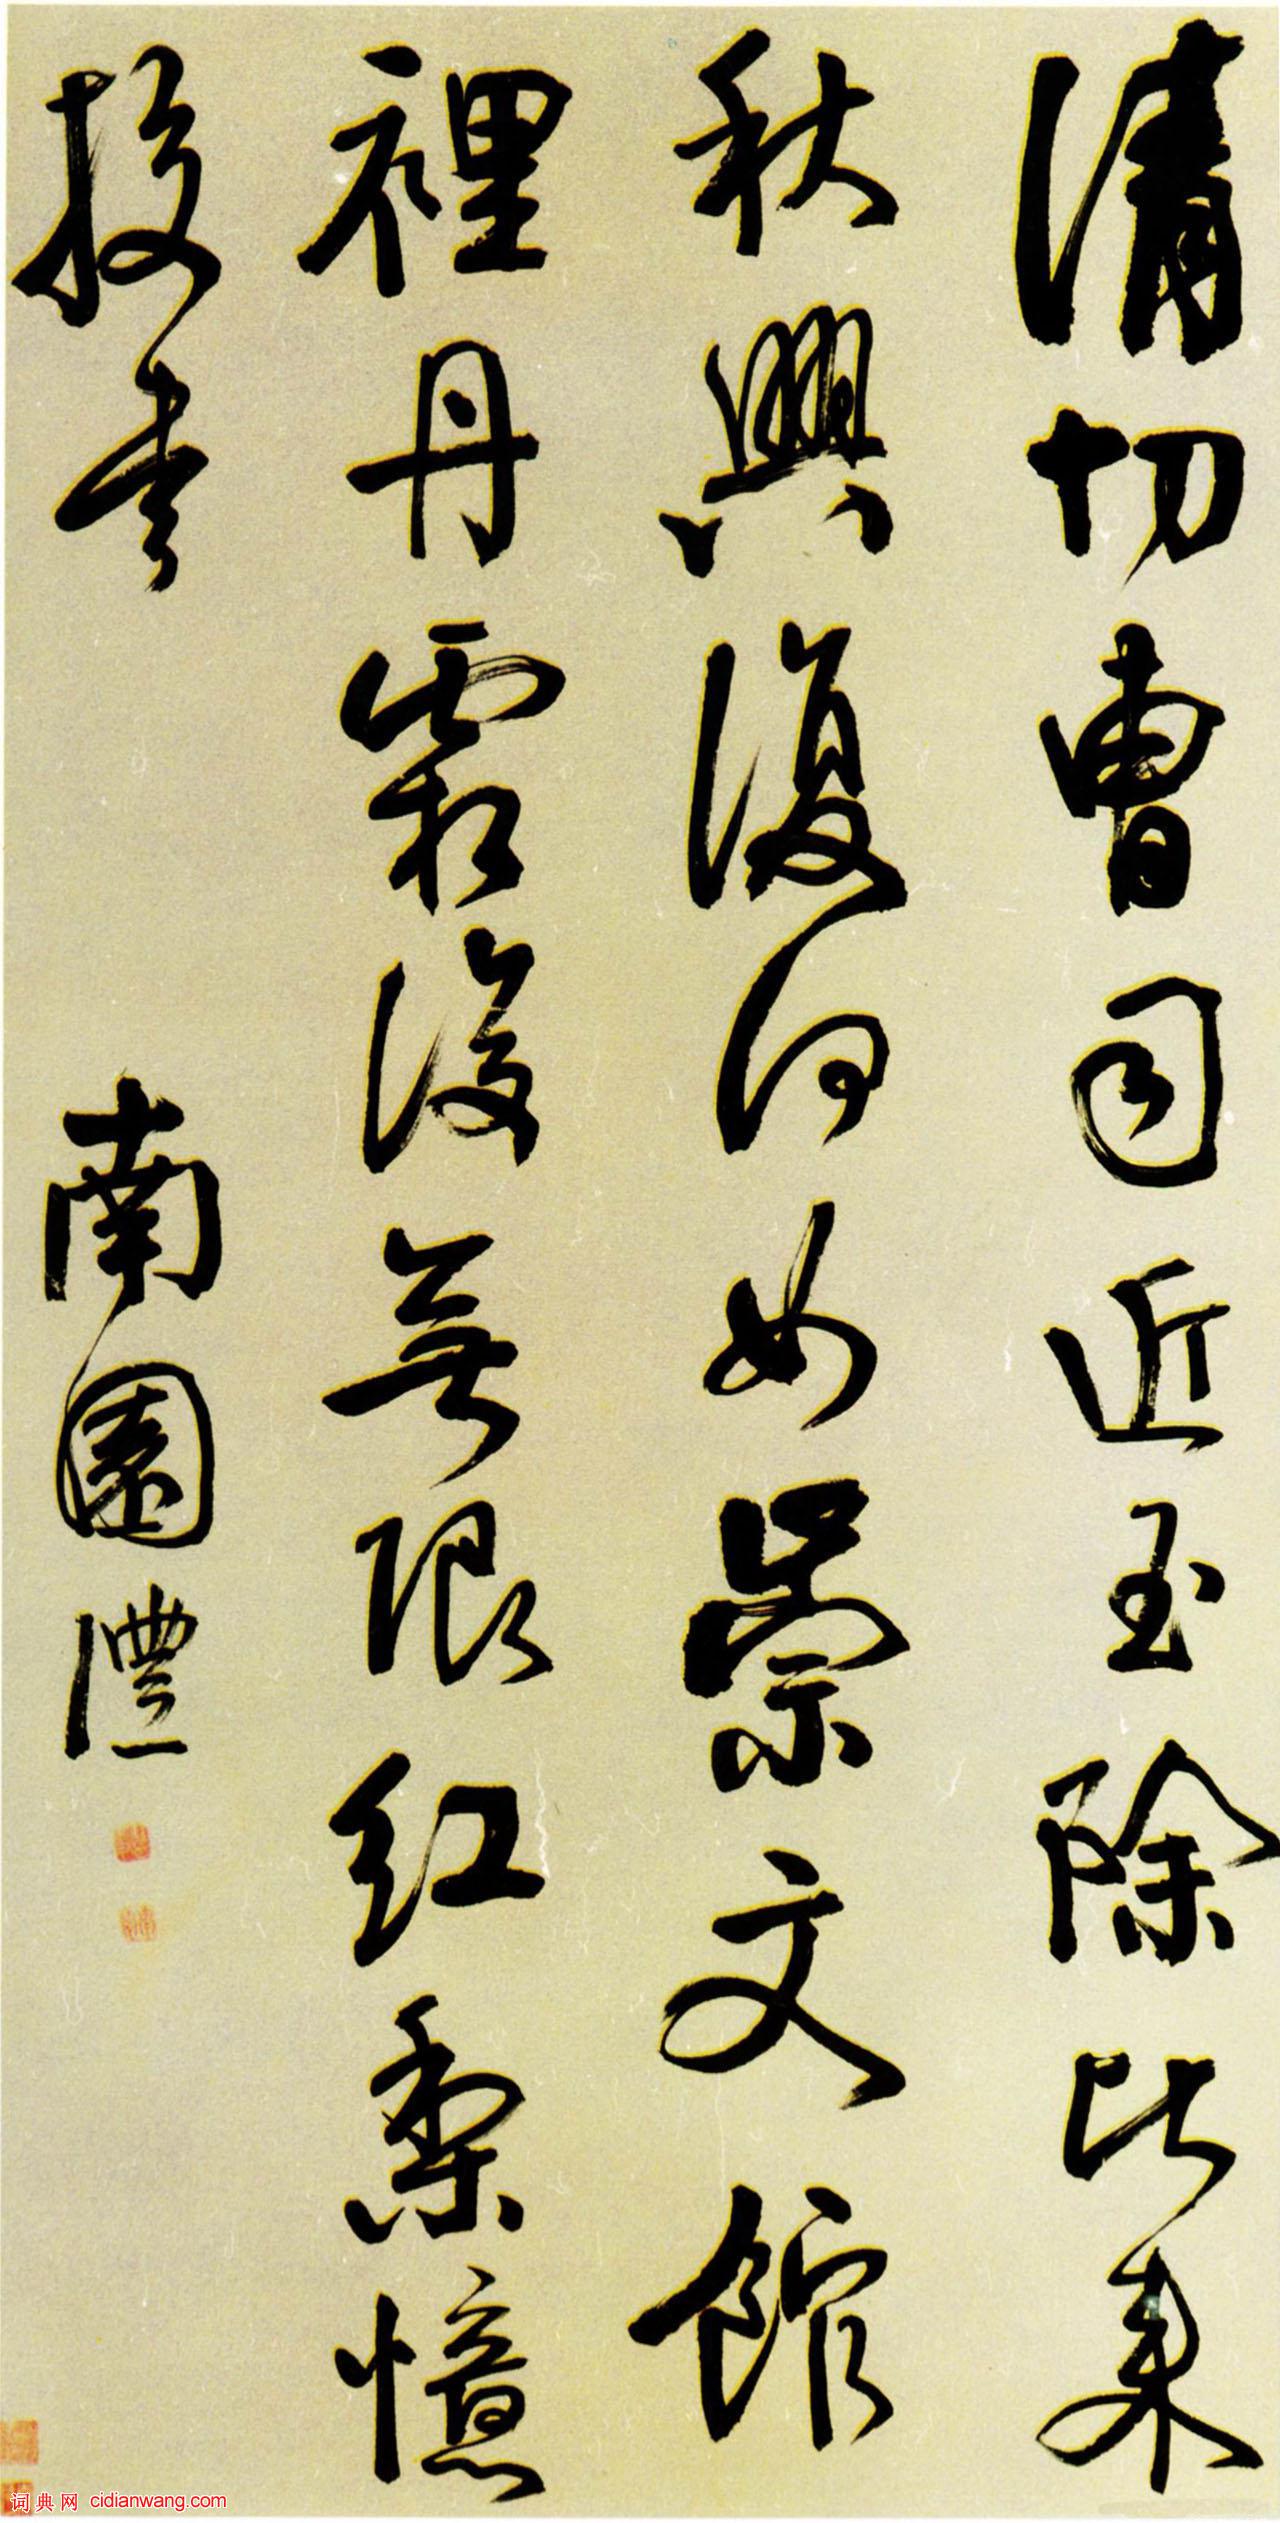 清切曹司近玉除比来
秋興復何如崇文館
裡丹霜後無限红梨憶
校书
南園澧
词典网 cidianwang.com